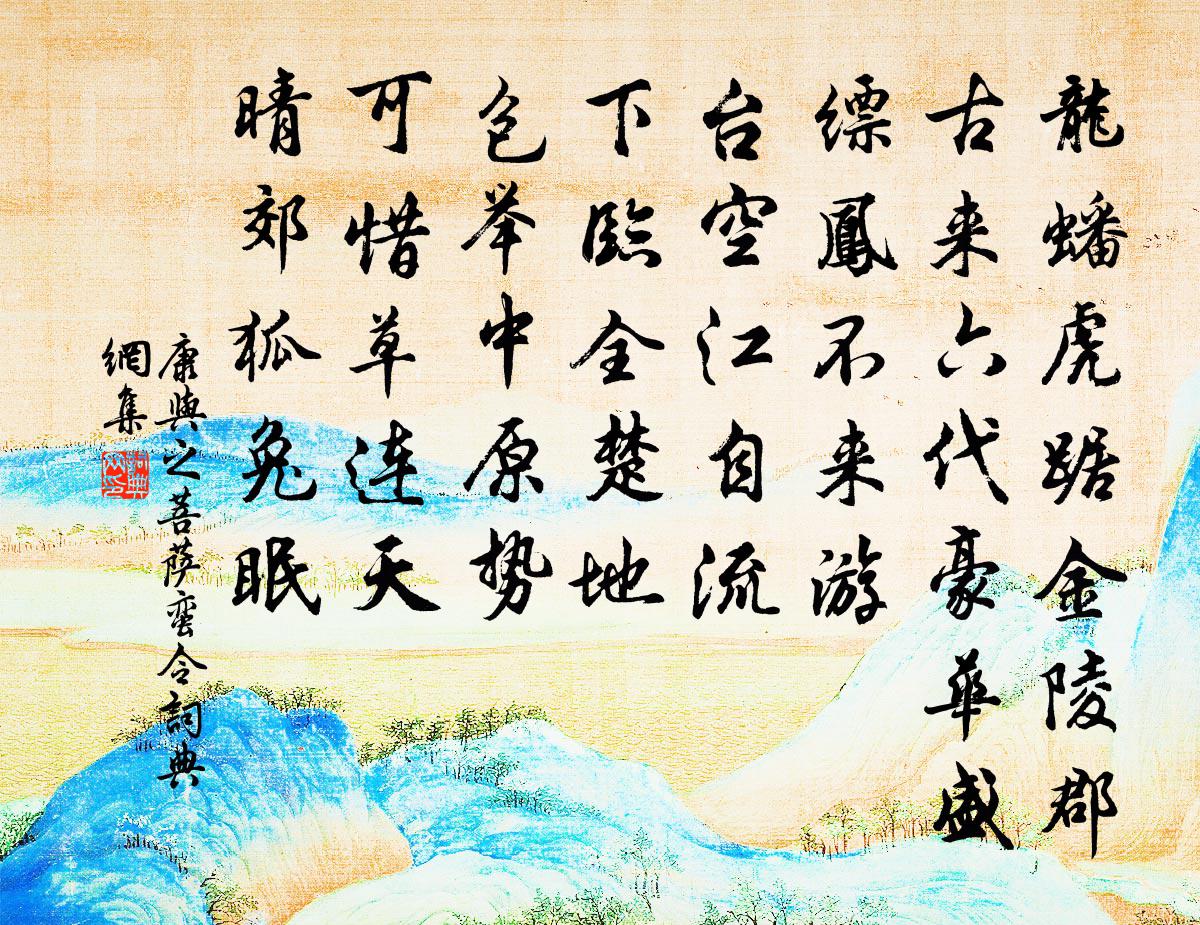 龍蟠虎踞金陵郡
古来六代豪華盛
缥鳳不来游
台空江自流
下臨全楚地
包举中原势
可惜草連天
晴郊狐兔眠
康與之菩萨蛮令詞典
網集
詞典網印